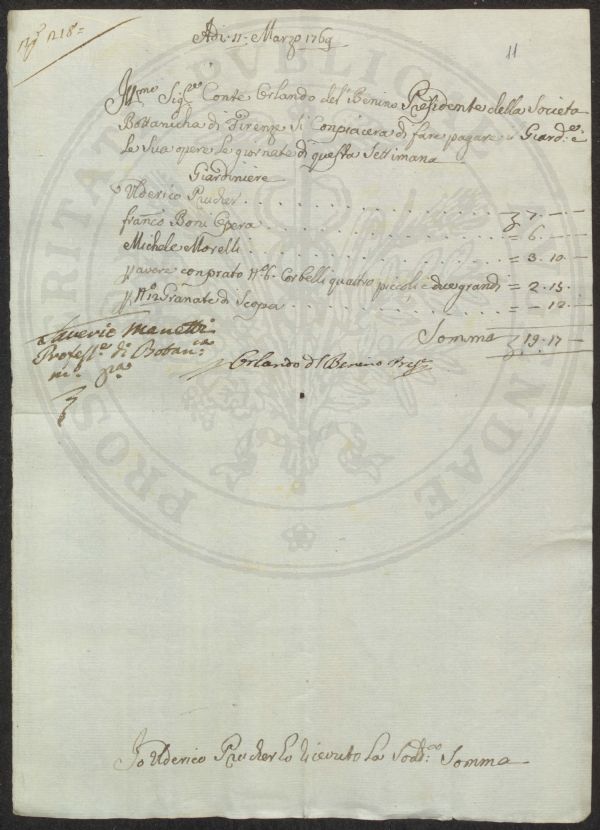 Adi 11 Marzo 1769
11
Ill.mo Sig.re Conte Orlando del Benino Presidente della Societa
Bottanicha di Firenze Si Conpiacera di fare pagare i Giard.e e
le Sua opere le giornate di questa Settimana
Giardiniere
Ulderico Prucher . . . . . . . . . . 7 . —
franco Boni Opera . . . . . . . . . . = 6 . —
Michele Morelli . . . . . . . . . . = 3 . 10 . —
p avere conprato N.o 6 Corbelli quattro piccoli e due grandi = 2 . 15 .
p N.o 12 Granate di Scopa . . . . . . = — 12 . —
Somma 19 . 17 —
Saverio Manetti
Profess.e di Botan.ca
m.o p.a
Orlando Del Benino Pres.e
Io Ulderico Prucher ho ricevuto la Sodd.a Somma
PROSPERITATI PUBLICAE AUGENDAE